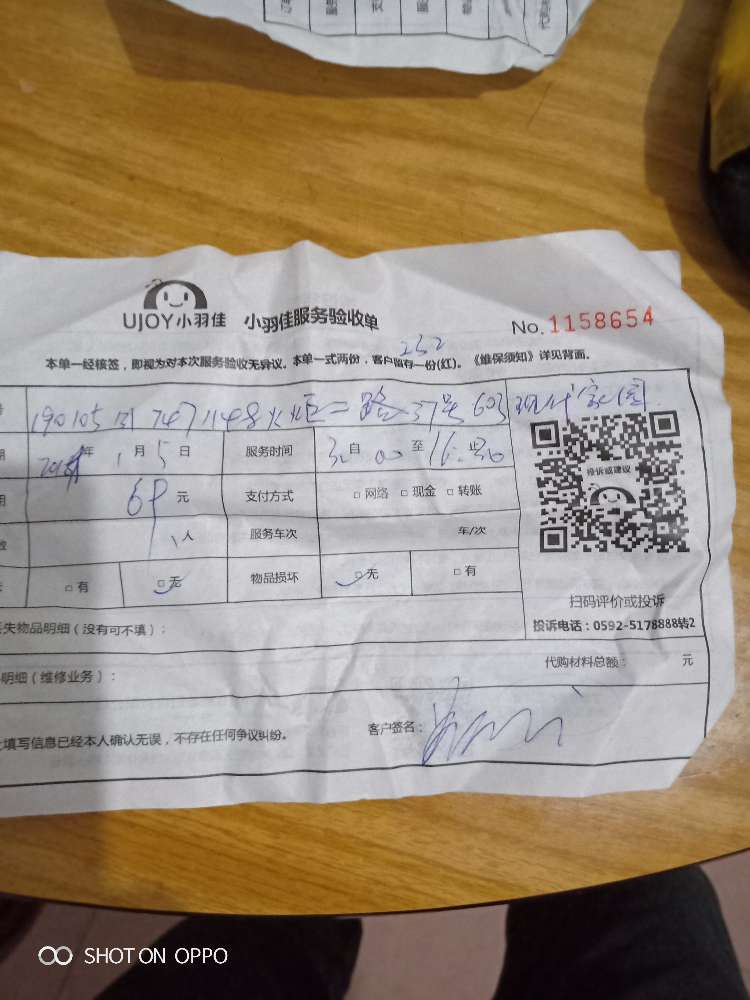 UJOY小羽佳 小羽佳服务验收单 No.1158654
本单一经核签，即视为对本次服务验收无异议。本单一式两份，客户留存一份(红)。《维保须知》详见背面。
232
火炬二路37号603现代家园
年1月5日 服务时间 自 至
69元 支付方式 □网络 □现金 □转账
人 服务车次 车/次
□有 □无 物品损坏 □无 □有
投诉或建议
扫码评价或投诉
投诉电话：0592-5178888转2
失物品明细（没有可不填）：
代购材料总额： 元
明细（维修业务）：
填写信息已经本人确认无误，不存在任何争议纠纷。 客户签名：
SHOT ON OPPO